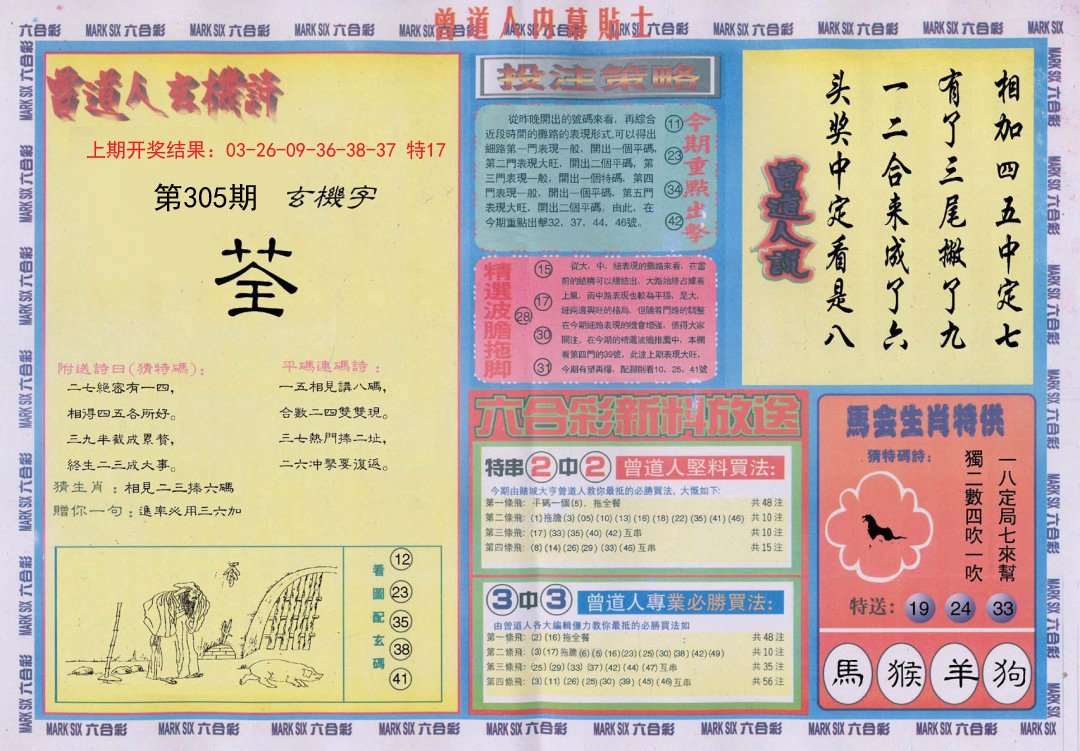 曾道人内幕貼士
六合彩 MARK SIX 六合彩 MARK SIX 六合彩 MARK SIX 六合彩 MARK SIX 六合彩 MARK SIX 六合彩 MARK SIX 六合彩 MARK SIX 六合彩 MARK SIX 六合彩 MARK SIX
曾道人玄機詩
上期开奖结果：03-26-09-36-38-37 特17
第305期 玄機字
荃
附送詩曰(猜特碼)：
二七絕密有一四，
相得四五各所好。
三九半截成累贅，
終生二三成大事。
平碼連碼詩：
一五相見講八碼，
合數二四雙雙現。
三七熱門捧二址，
二六沖擊要復返。
猜生肖：相見二三捧六碼
贈你一句：進率必用三六加
看圖配玄碼
12
23
35
38
41
投注策略
從昨晚開出的號碼來看，再綜合
近段時間的攤路的表現形式,可以得出
細路第一門表現一般，開出一個平碼、
第二門表現大旺，開出二個平碼，第
三門表現一般，開出一個特碼，第四
門表現一般，開出一個平碼，第五門
表現大旺，開出二個平碼。由此，在
今期重點出擊32、37，44，46號。
今期重點出擊
11
23
34
42
精選波膽拖脚
15
17
28
30
31
從大，中，細表現的攤路來看，在當
前的結構可以總結出，大路始終占據着
上風，而中路表現也較為平穩，是大，
細兩邊興旺的格局、但隨着門路的調整
在今期細路表現的機會增強，值得大家
關注。在今期的精選波膽推薦中，本欄
看第四門的39號，此波上期表現大旺，
今期有望再爆，配脚則看10、25，41號
六合彩新料放送
特串2中2 曾道人堅料買法:
今期由賭城大亨曾道人教你最抵的必勝買法，大慨如下:
第一條飛: 平碼一個(5)，拖全餐 共48注
第二條飛: (1)拖膽(3)(05)(10)(13)(16)(18)(22)(35)(41)(46) 共10注
第三條飛: (17)(33)(35)(40)(42)互串 共10注
第四條飛: (8)(14)(26)(29)(33)(46)互串 共15注
3中3 曾道人專業必勝買法:
由曾道人各大編輯僵力教你最抵的必勝買法如
第一條飛: (2)(16)拖全餐 : 共48注
第二條飛: (3)(17)拖膽(6)(5)(16)(23)(25)(30)(38)(42)(49) 共10注
第三條飛: (25)(29)(33)(37)(42)(44)(47)互串 共35注
第四條飛: (3)(11)(26)(25)(30)(39)(45)(46)互串 共56注
相加四五中定七
有了三尾撇了九
一二合来成了六
头奖中定看是八
曾道人說
馬会生肖特供
猜特碼詩:
一八定局七來幫
獨二數四吹一吹
特送: 19 24 33
馬 猴 羊 狗
MARK SIX 六合彩 MARK SIX 六合彩 MARK SIX 六合彩 MARK SIX 六合彩 MARK SIX 六合彩 MARK SIX 六合彩 MARK SIX 六合彩 MARK SIX 六合彩 MARK SIX 六合彩 MARK SIX